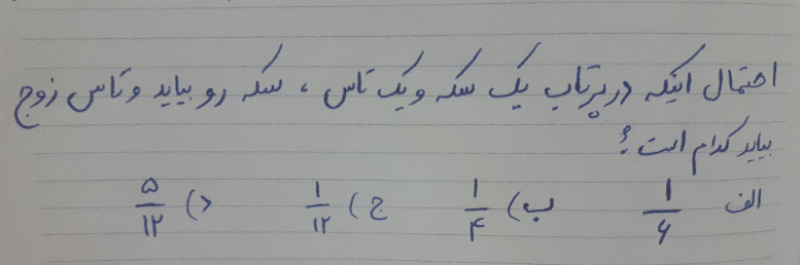 احتمال اینکه در پرتاب یک سکه و یک تاس ، سکه رو بیاید و تاس زوج
بیاید کدام است؟
الف ۱/۶ ب) ۱/۴ ج) ۱/۱۲ د) ۵/۱۲